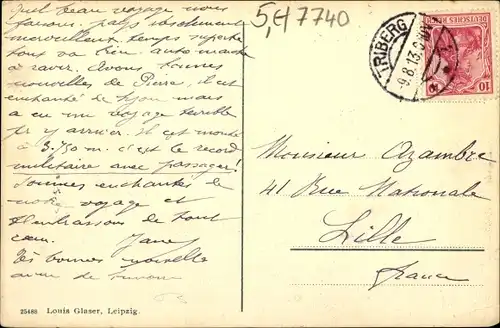 Quel beau voyage nous
faisons. pays absolument
merveilleux temps superbe
tout va bien. auto marche
à ravir. Avons bonnes
nouvelles de Pierre, il est
enchanté de Lyon mais
a eu un voyage terrible
pr y arriver. Il est monté
à 3.750 m. c'est le record
militaire avec passager!
Sommes enchantés de
notre voyage et
t'embrassons de tout
cœur. Jane
bonnes
5,- 7740
TRIBERG
9.8.13.
DEUTSCHES REICH
10
Monsieur Azambre
41 Rue Nationale
Lille
France
25486 Louis Glaser, Leipzig.